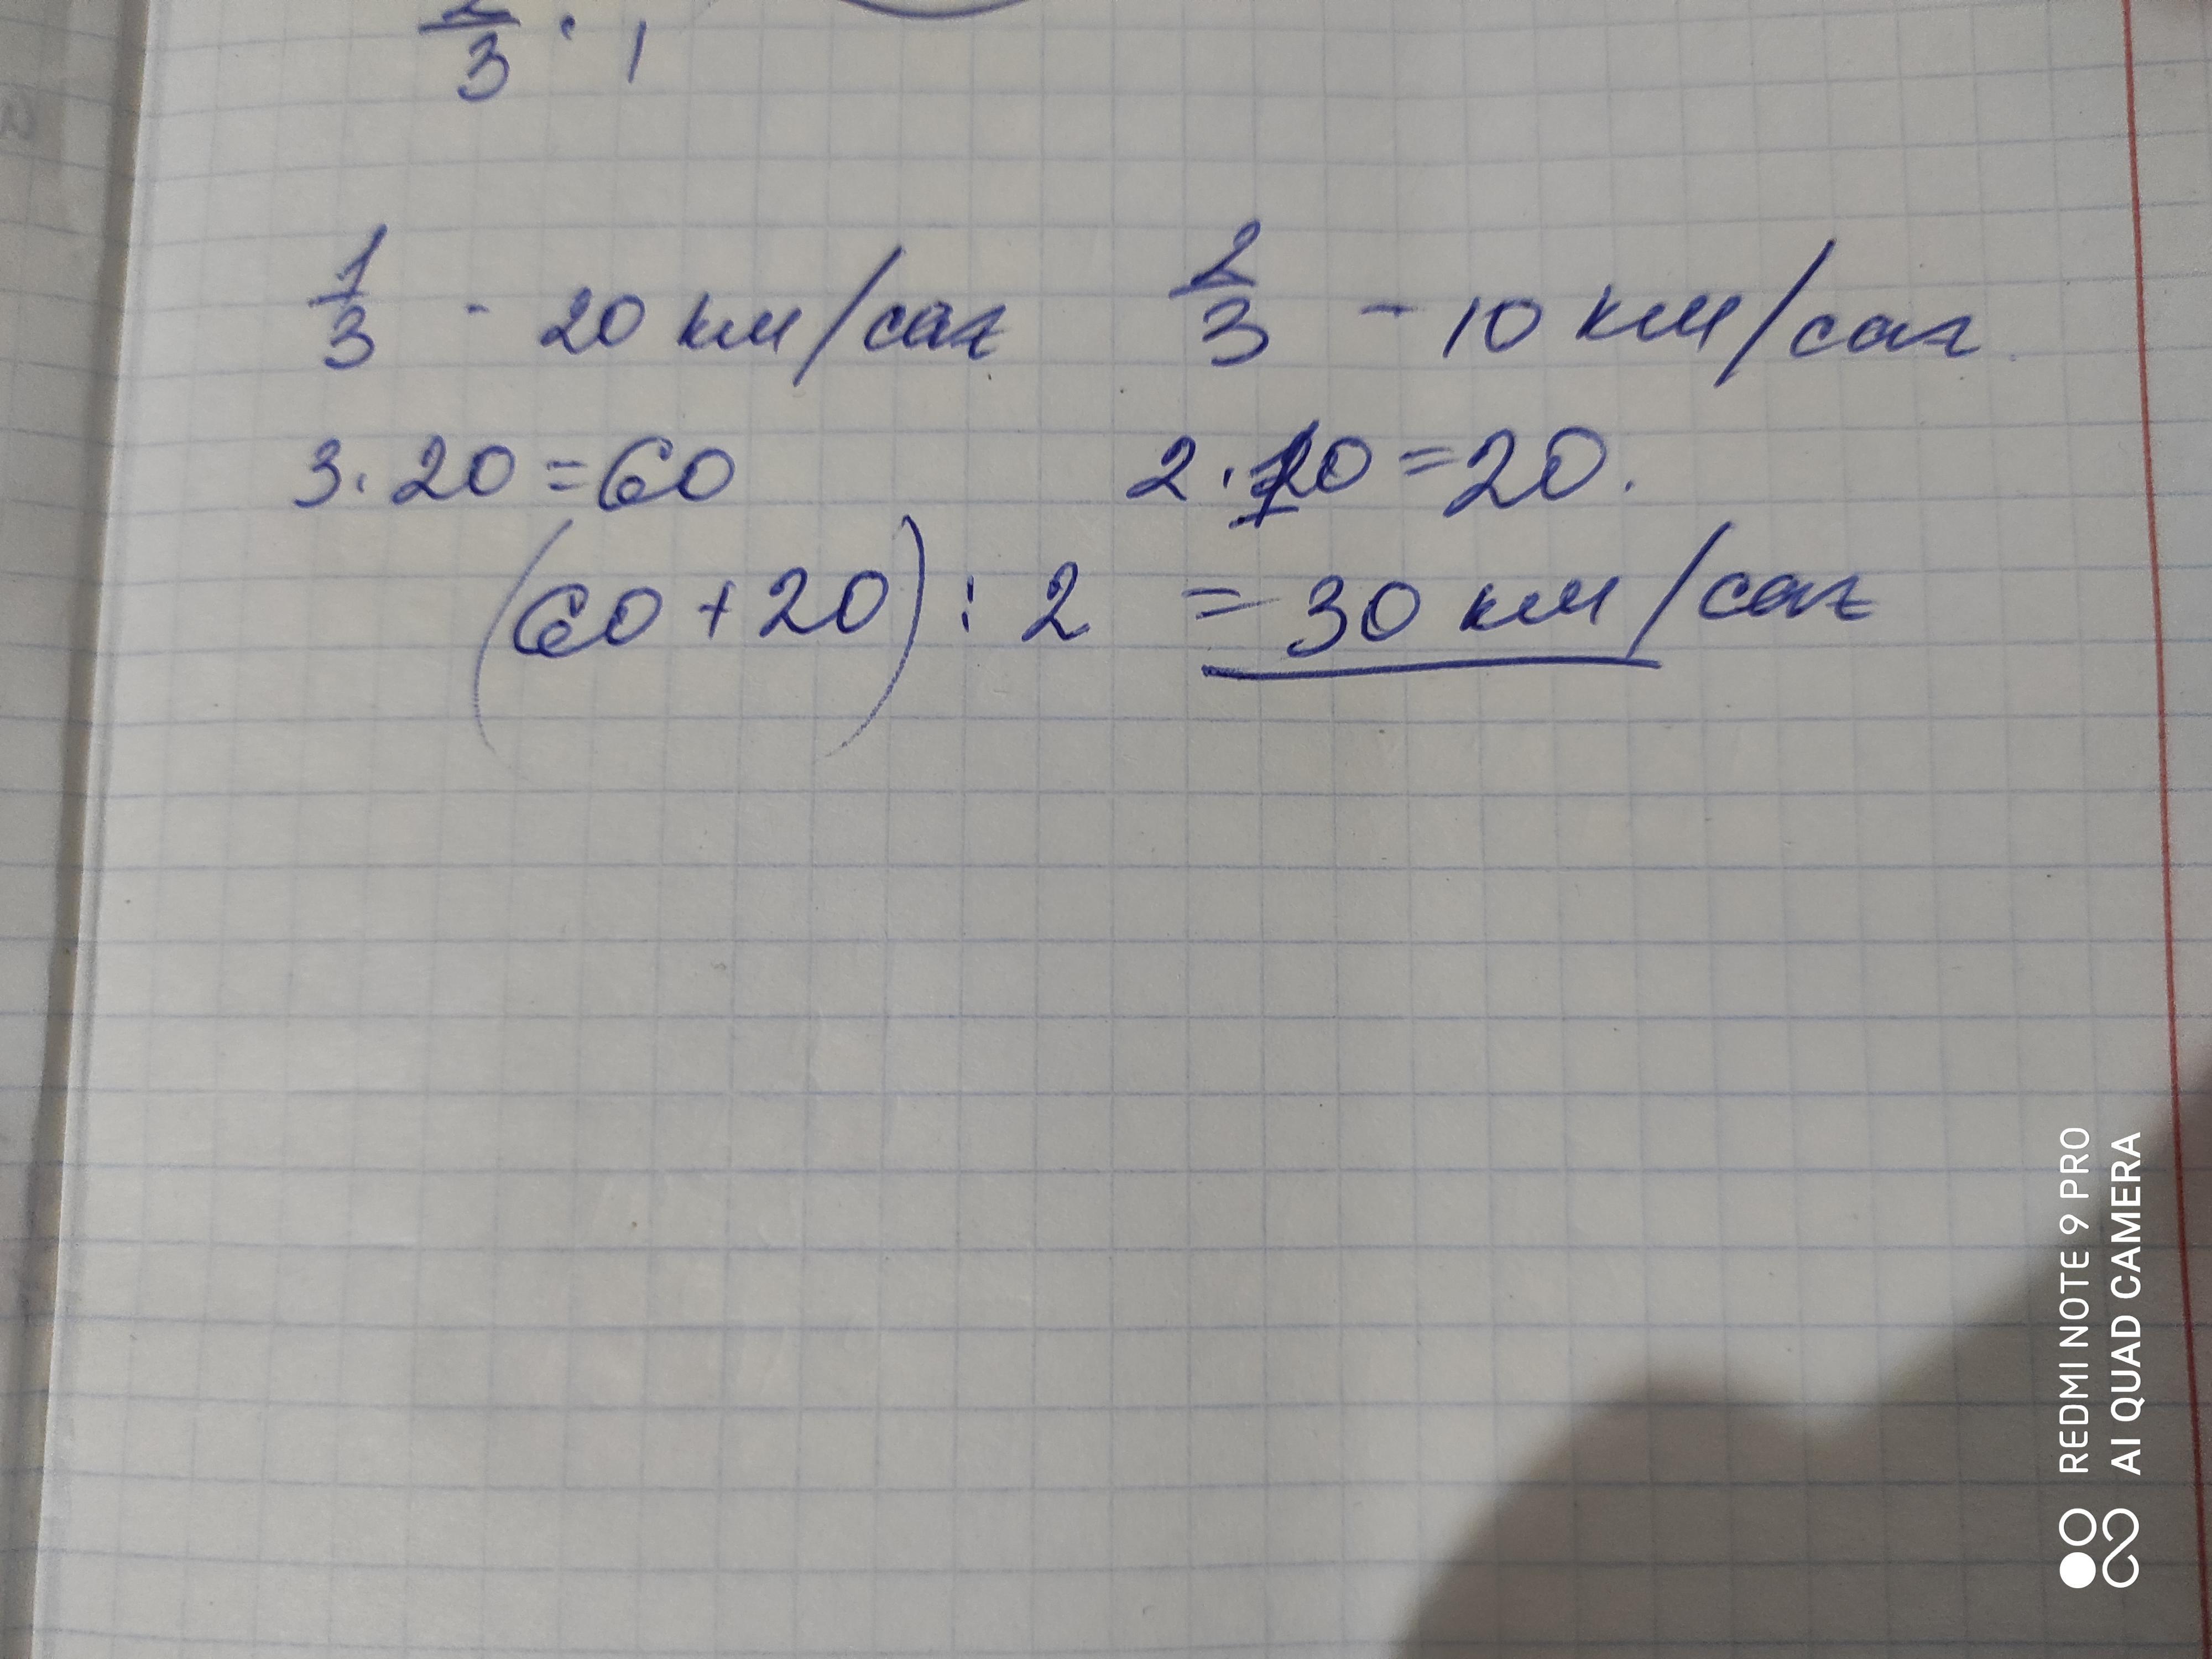 2/3 · 1
1/3 - 20 км/саг 2/3 - 10 км/саг
3 · 20 = 60 2 · 10 = 20.
(60 + 20) : 2 = 30 км/саг
REDMI NOTE 9 PRO
AI QUAD CAMERA